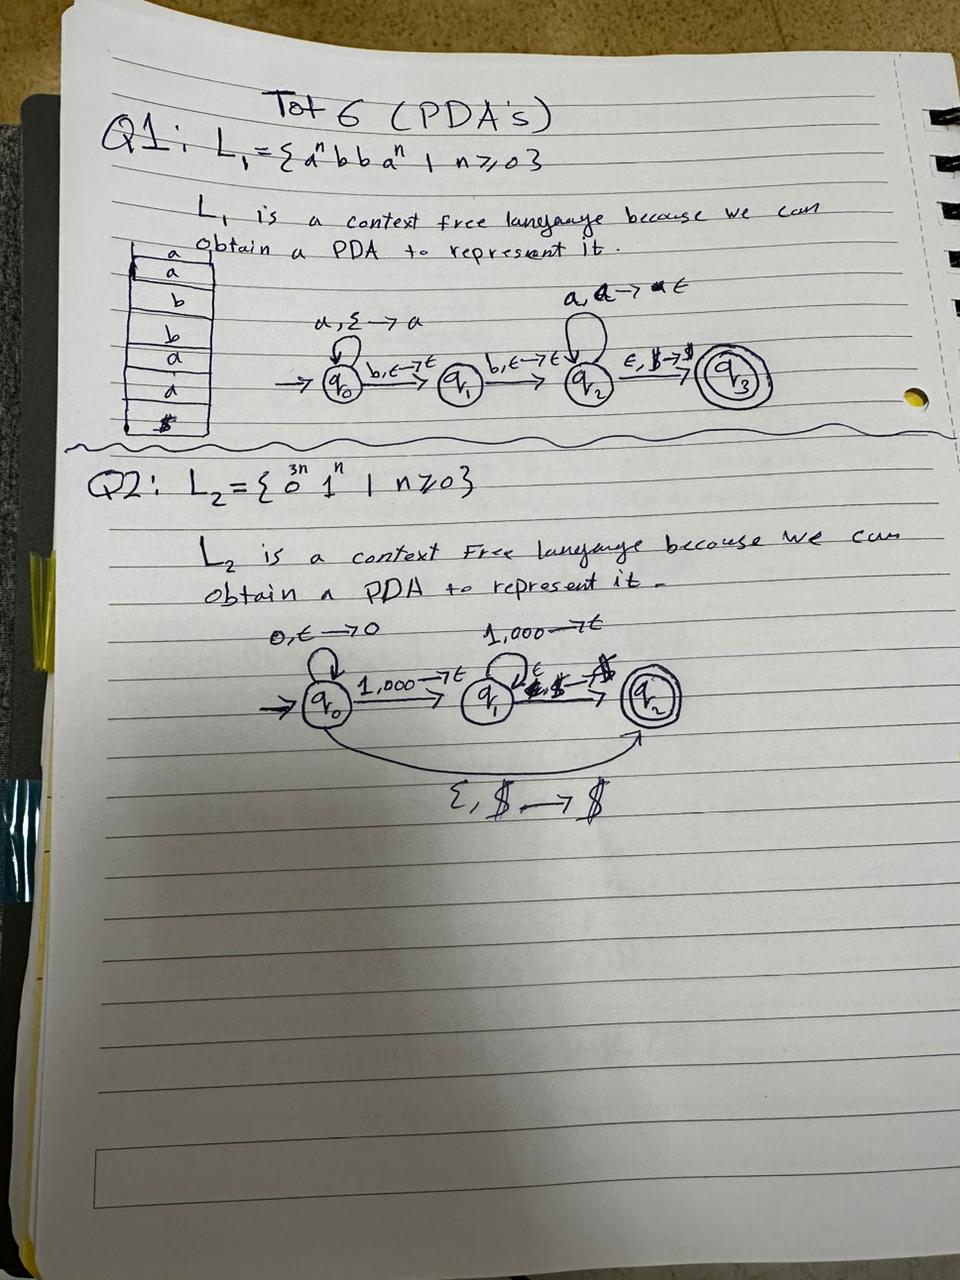 Tot 6 (PDA's)
Q1: L₁ = { aⁿ b b aⁿ | n ≥ 0 }
L₁ is a context free langauge because we can
obtain a PDA to represent it.
a
a
b
b
a
a
$
a, ε → a
a, a → ε
q₀
b, ε → ε
q₁
b, ε → ε
q₂
ε, $ → $
q₃
Q2: L₂ = { 0³ⁿ 1ⁿ | n ≥ 0 }
L₂ is a context Free langauge because we can
obtain a PDA to represent it.
0, ε → 0
1, 000 → ε
q₀
1, 000 → ε
q₁
ε, $ → $
q₂
ε, $ → $